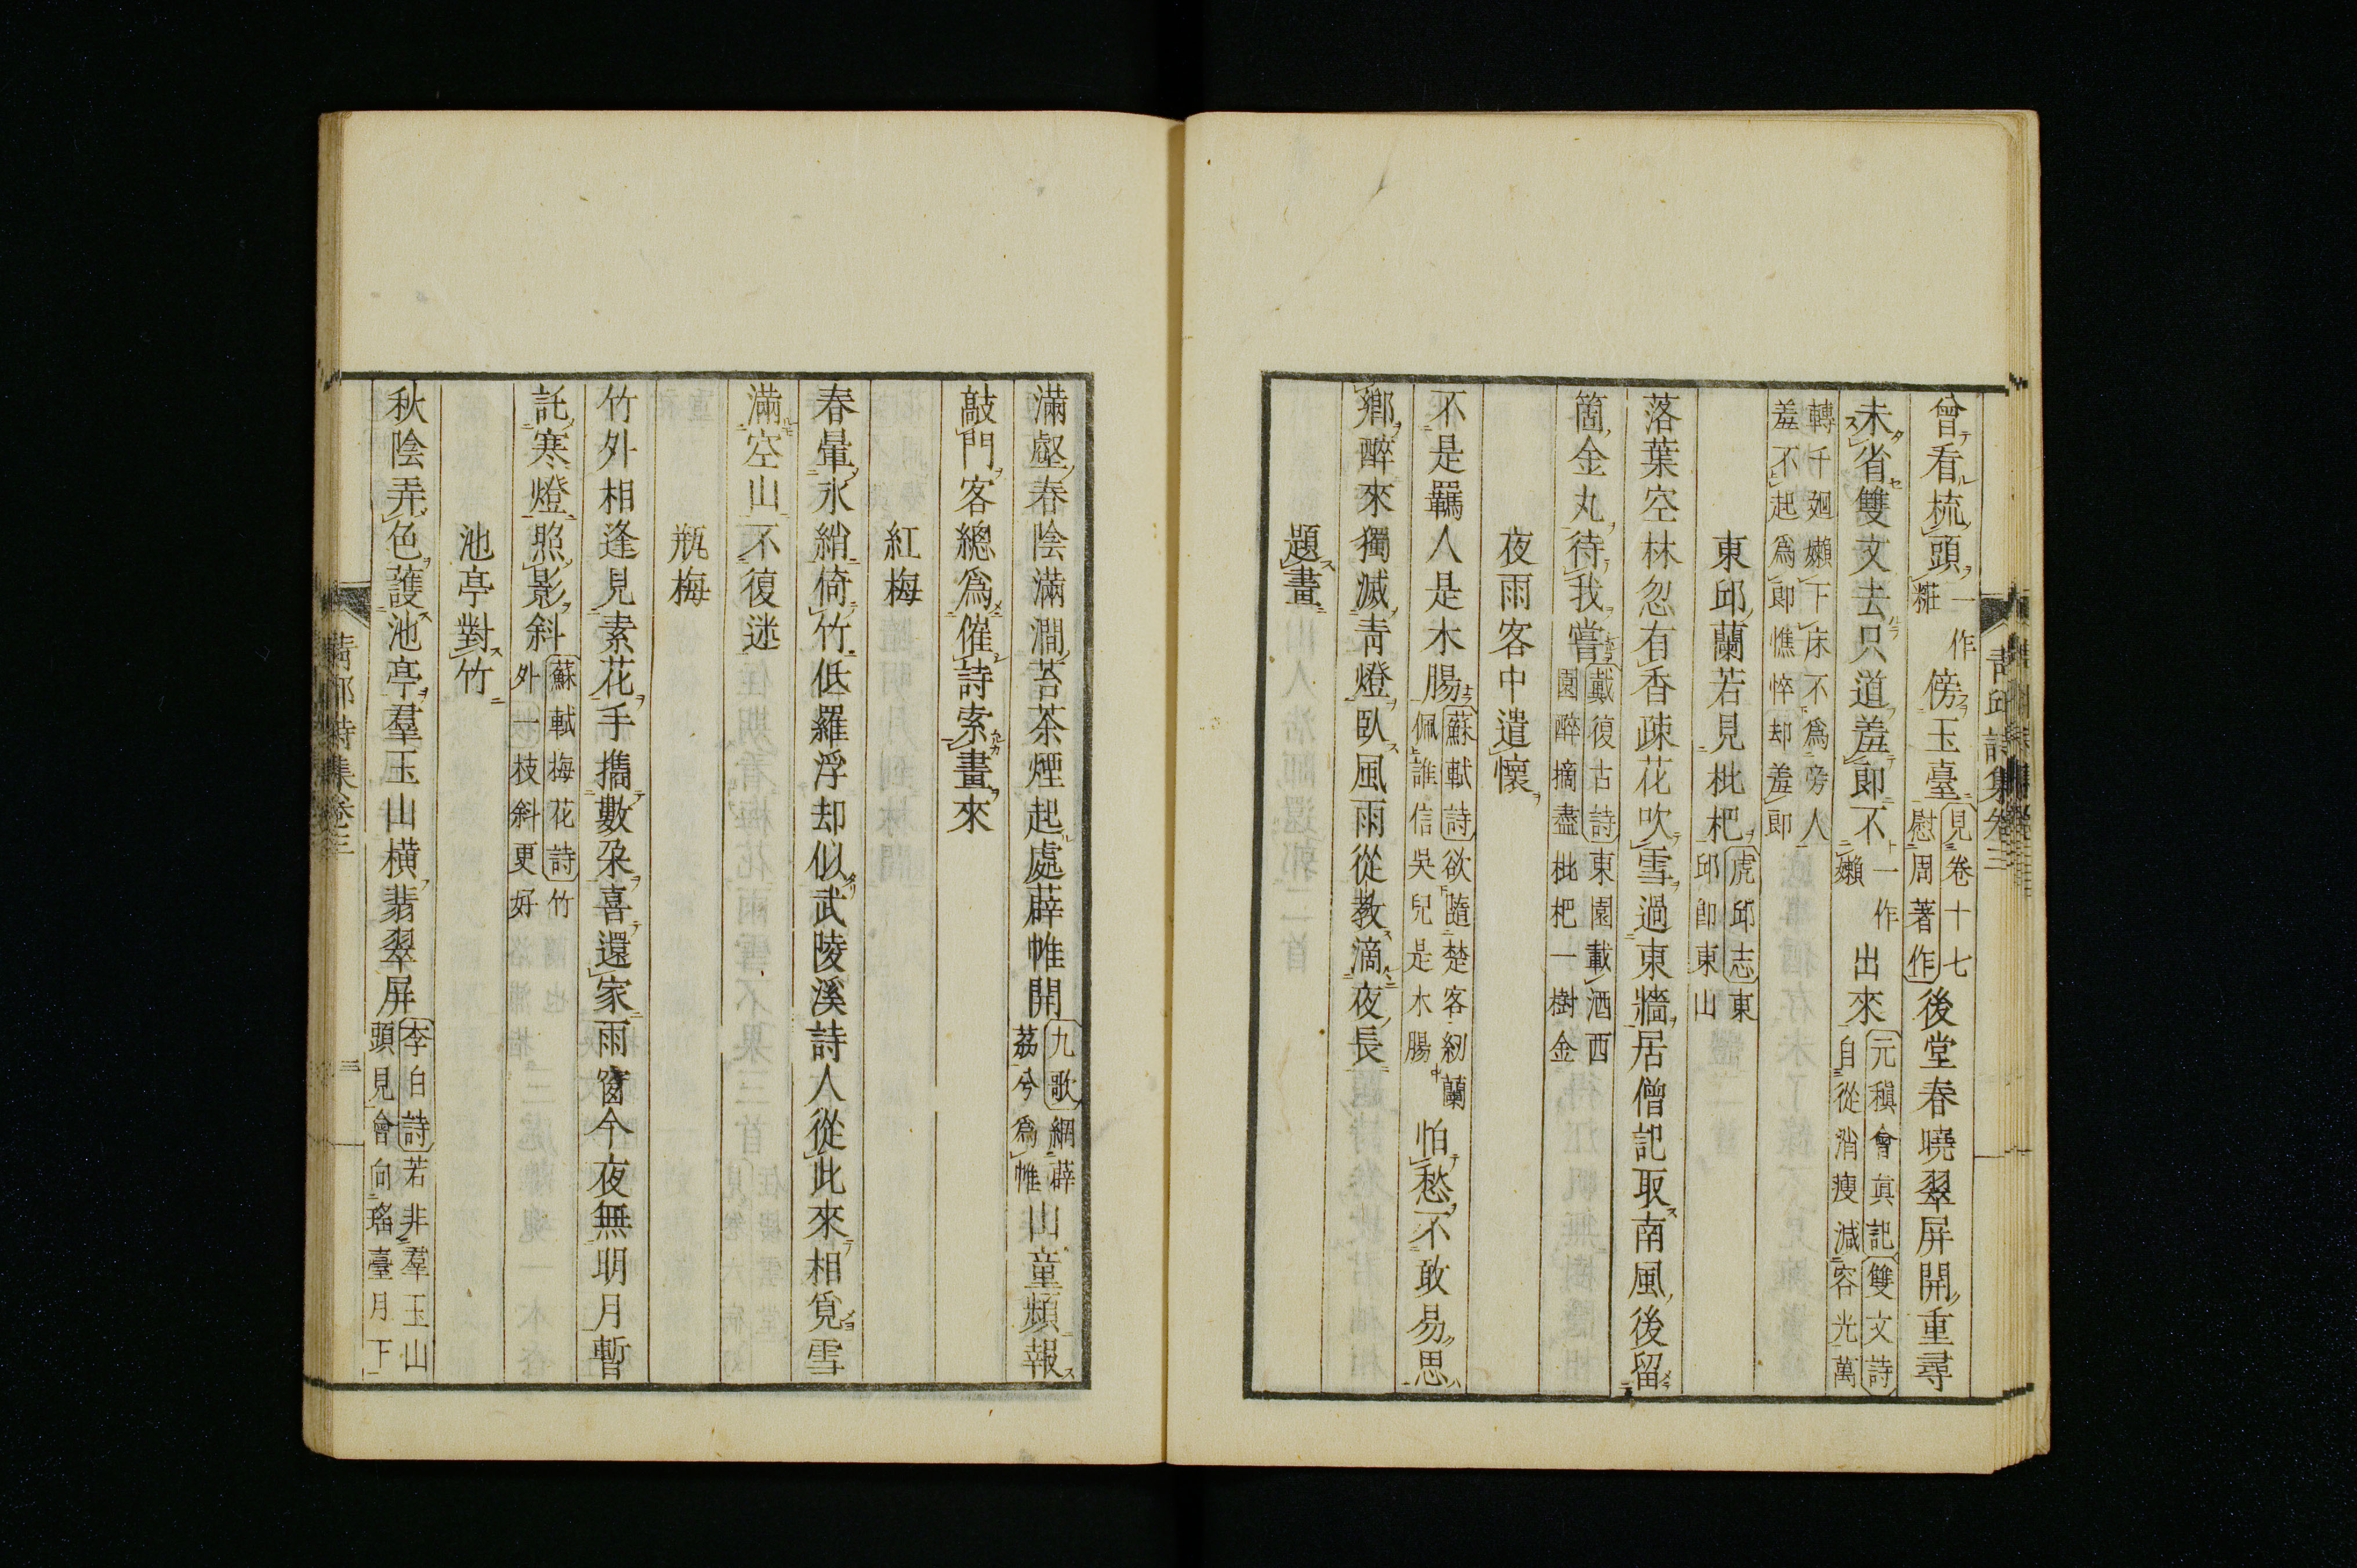 曾看梳頭一作粧傍玉臺見卷十七慰周著作後堂春曉翠屏開重尋
未省雙文去只道羞郎不一作嬾出來元稹會真記雙文詩自從消瘦減容光萬
轉千廻嬾下床不為旁人羞不起為郎憔悴却羞郎
東邱蘭若見枇杷虎邱志東邱即東山
落葉空林忽有香疎花吹雪過東牆居僧記取南風後留
箇金丸待我嘗戴復古詩東園載酒西園醉摘盡枇杷一樹金
夜雨客中遣懷
不是羈人是木腸蘇軾詩欲隨楚客紉蘭佩誰信吳兒是木腸怕愁不敢易思
鄉醉來獨滅青燈臥風雨從教滴夜長
題畫
青邱詩集卷三
滿壑春陰滿澗苔茶煙起處薜帷開九歌網薜荔兮為帷山童頻報
敲門客總為催詩索畫來
紅梅
春暈冰綃倚竹低羅浮却似武陵溪詩人從此來相覓雪
滿空山不復迷
瓶梅
竹外相逢見素花手攜數朶喜還家雨窗今夜無明月暫
託寒燈照影斜蘇軾梅花詩竹外一枝斜更好
池亭對竹
秋陰弄色護池亭羣玉山橫翡翠屏李白詩若非羣玉山頭見會向瑤臺月下
青邱詩集卷三
三